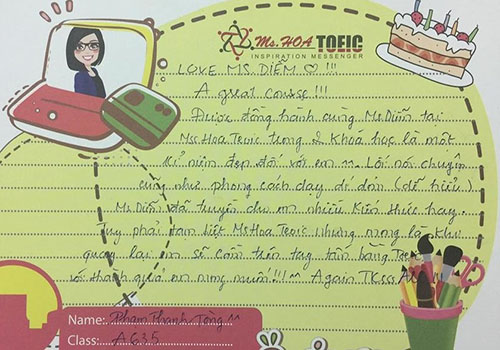 Ms. HOA TOEIC
INSPIRATION MESSENGER
LOVE MS. DIỄM ♡ !!!
A great course!!!
Được đồng hành cùng Ms Diễm tại
Ms Hoa Toeic trong 2 khoá học là một
kỉ niệm đẹp đối với em ^^ Lối nói chuyện
cũng như phong cách dạy dí dỏm (dễ hiểu).
Ms Diễm đã truyền cho em nhiều kiến thức hay.
Tuy phải tạm biệt Ms Hoa Toeic nhưng mong là khi
quay lại em sẽ cầm trên tay tấm bằng Toeic
với thành quả em mong muốn!!! ^^ Again TKsss
Name: Phạm Thanh Tòng ^^
Class: A635